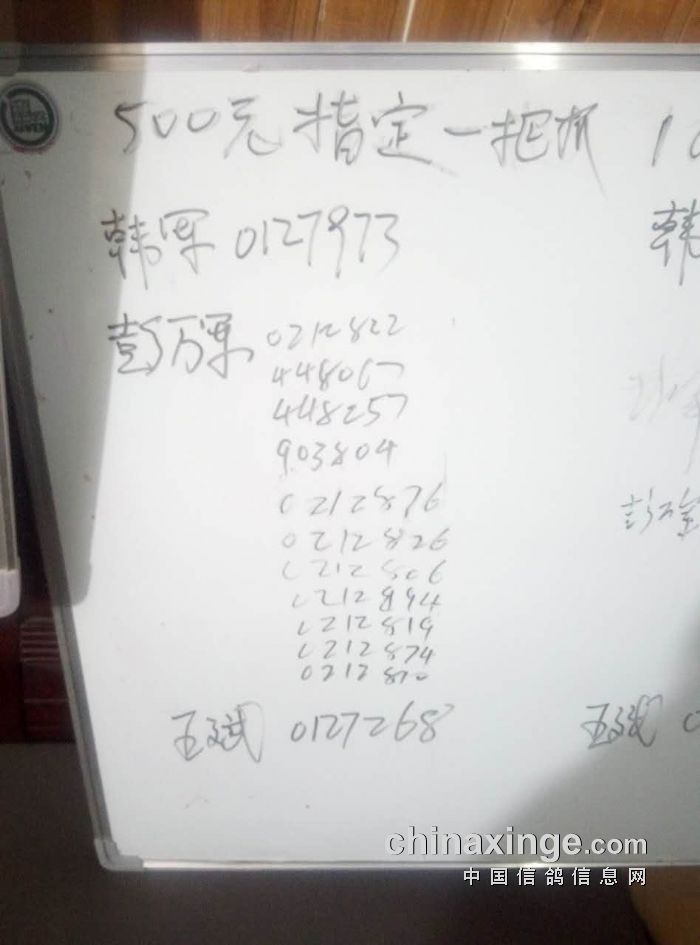 500元指定一把抓 10
韩军 0127973 韩
彭万军 0212822
448067
448257
903804
0212876
0212826
0212806
0212894
0212819
0212874
0212870
王斌 0127268 王斌 0
chinaxinge.com
中国信鸽信息网